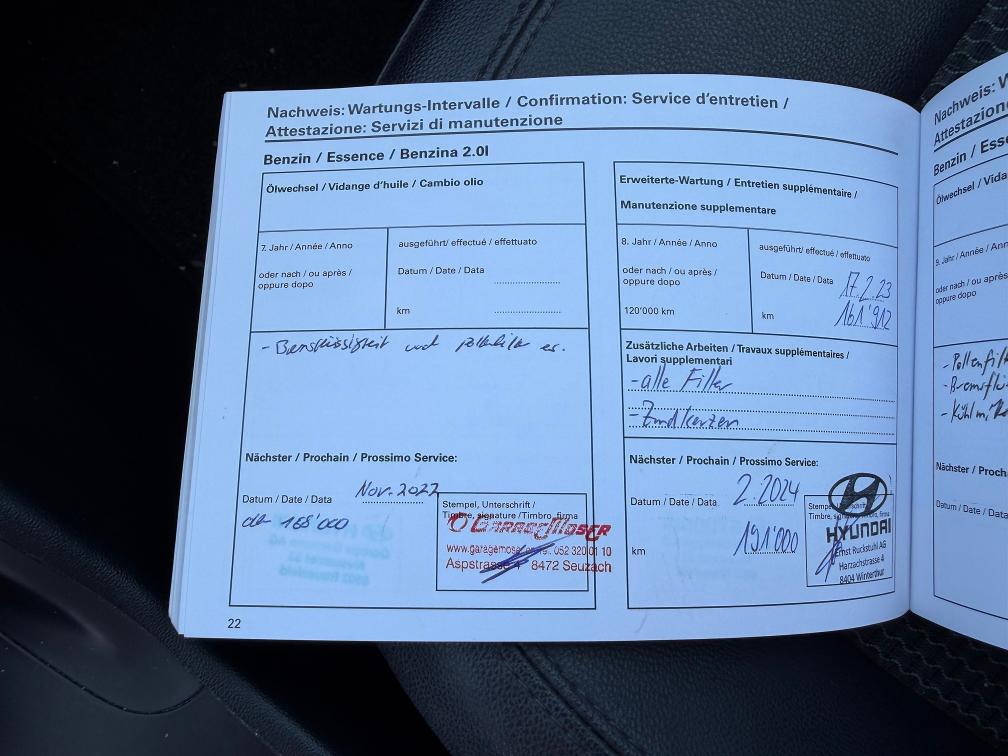 Nachweis: Wartungs-Intervalle / Confirmation: Service d'entretien /
Attestazione: Servizi di manutenzione
Benzin / Essence / Benzina 2.0l
Ölwechsel / Vidange d'huile / Cambio olio
7. Jahr / Année / Anno
oder nach / ou après /
oppure dopo
ausgeführt/ effectué / effettuato
Datum / Date / Data
km
- Bremsflüssigkeit und pollenfilter er.
Nächster / Prochain / Prossimo Service:
Datum / Date / Data Nov. 2022
168'000
Stempel, Unterschrift /
Timbre, signature /Timbro, firma
Garage Moser
052 320 10
Aspstrasse 8472 Seuzach
Erweiterte-Wartung / Entretien supplémentaire /
Manutenzione supplementare
8. Jahr / Année / Anno
oder nach / ou après /
oppure dopo
120'000 km
ausgeführt/ effectué / effettuato
Datum / Date / Data 17.2.23
km 161'912
Zusätzliche Arbeiten / Travaux supplémentaires /
Lavori supplementari
- alle Filter
- Zündkerzen
Nächster / Prochain / Prossimo Service:
Datum / Date / Data 2.2024
km 191'000
HYUNDAI
Ernst Ruckstuhl AG
Harzachstrasse 4
8404 Winterthur
22
Nachweis:
Attestazione
Benzin / Esse
Ölwechsel / Vida
9. Jahr / Année / Ann
oder nach / ou après
oppure dopo
- Pollenfilt
- Bremsflü
- Kühlmi
Nächster / Proch
Datum / Date / Data
km